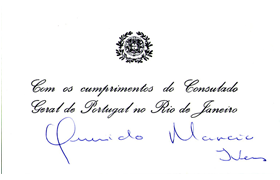 Com os cumprimentos do Consulado
Geral de Portugal no Rio de Janeiro
Querido Marcio